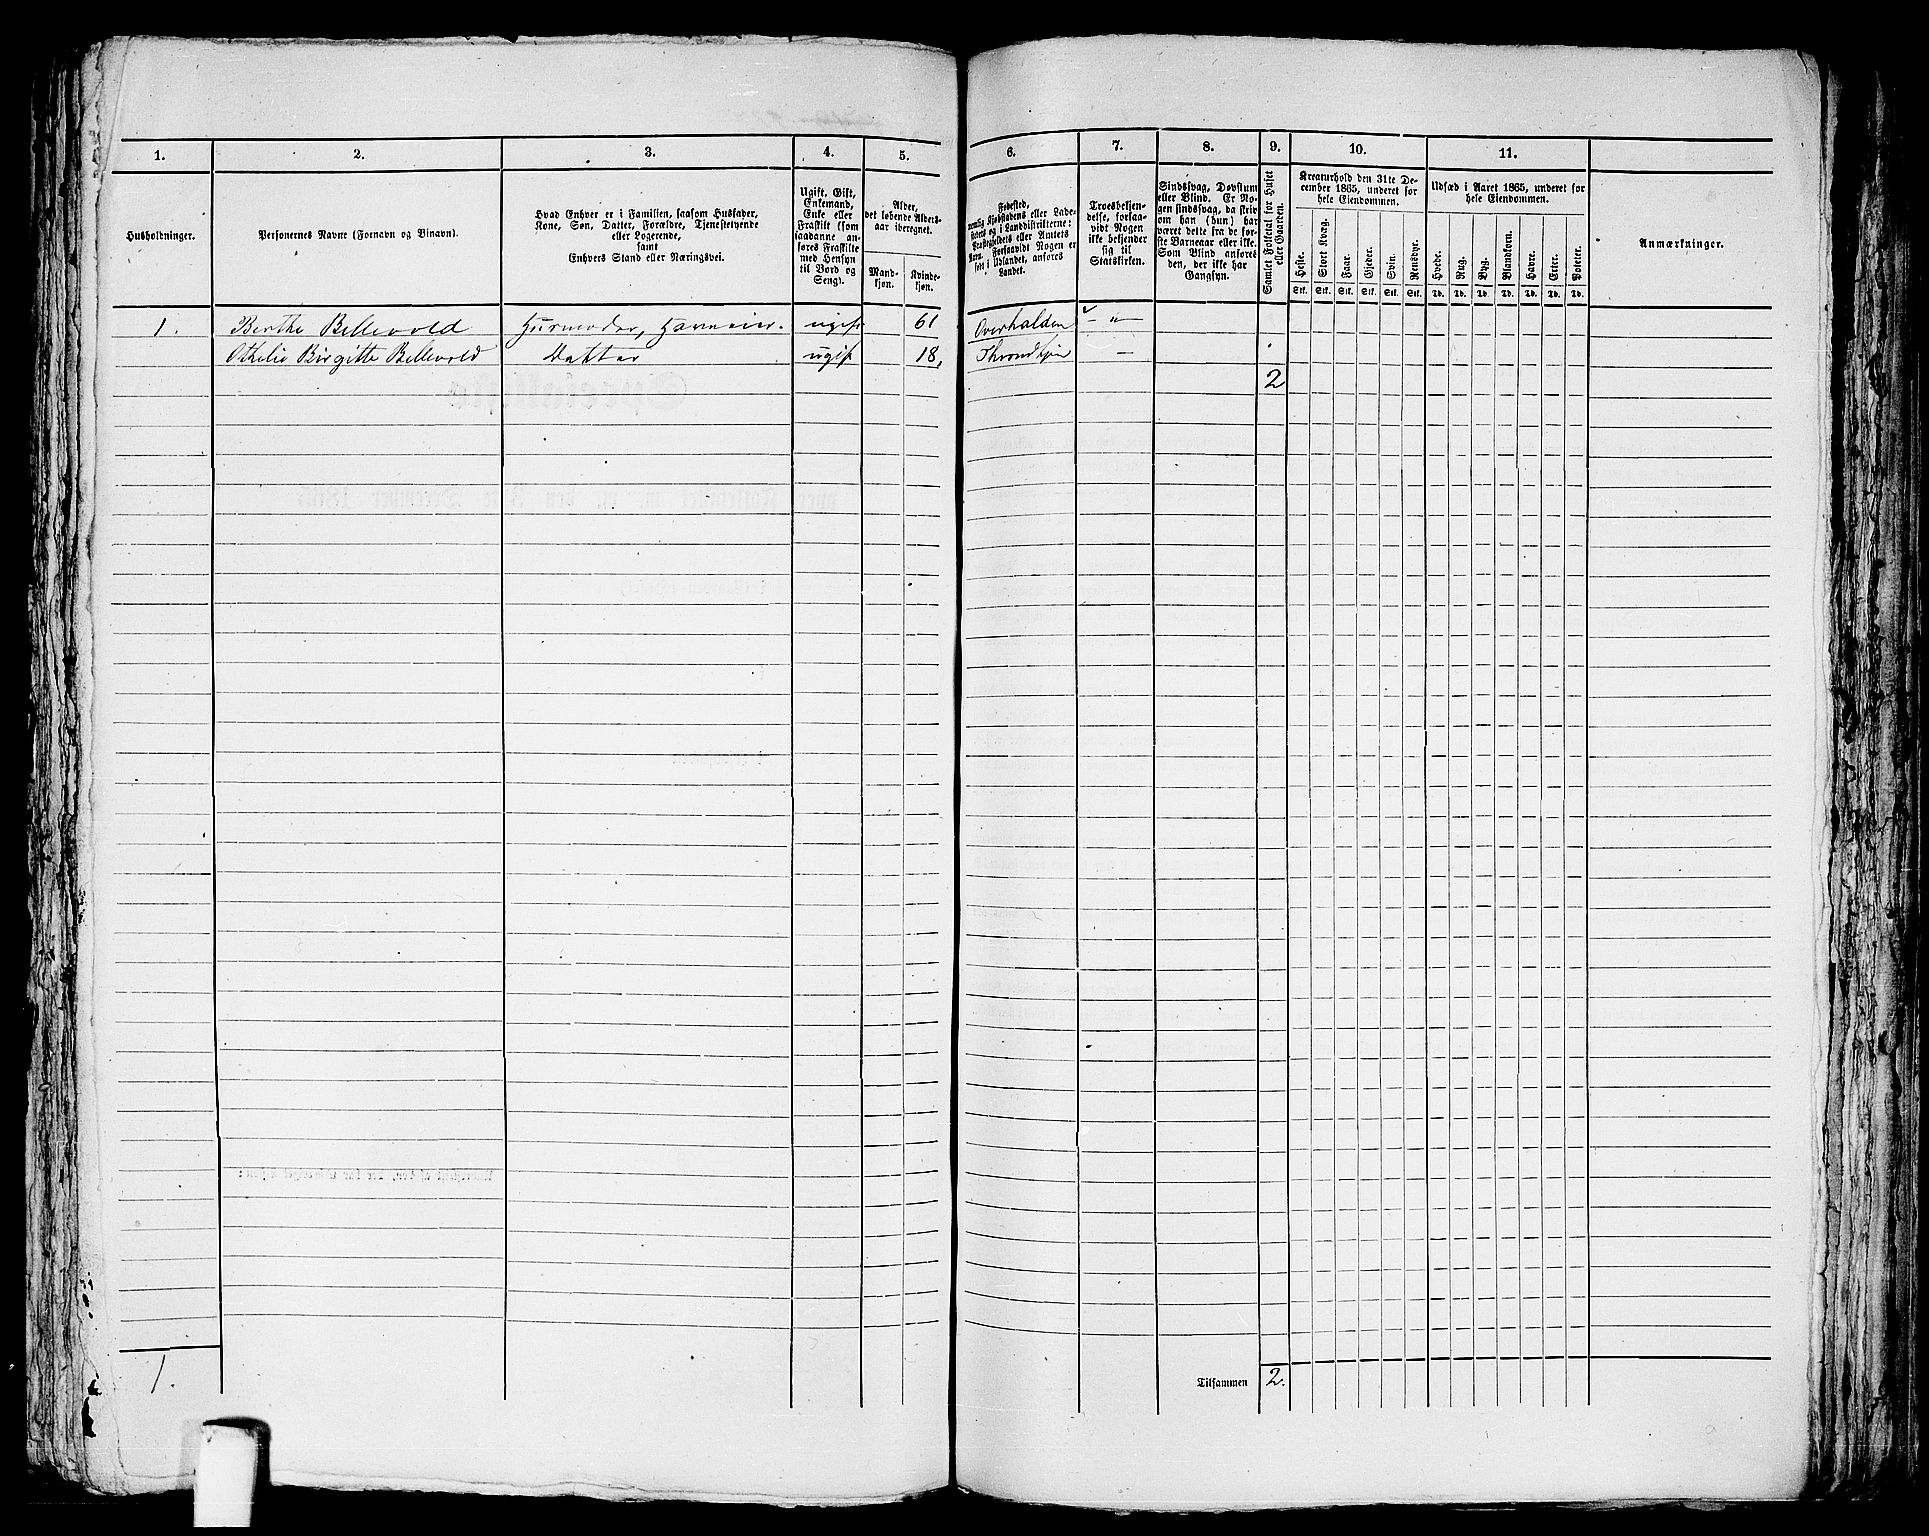 1. 2. 3. 4. 5. 6. 7. 8. 9. 10. 11.
Husholdninger.
Personernes Navne (Fornavn og Binavn).
Hvad Enhver er i Familien, saasom Husfader,
Kone, Søn, Datter, Forældre, Tjenestetyende
eller Logerende,
samt
Enhvers Stand eller Næringsvei.
Ugift, Gift,
Enkemand,
Enke eller
Fraskilt (som
saadanne an-
føres Fraskilte
med Hensyn
til Bord og
Seng).
Alder,
det løbende Alders-
aar iberegnet.
Mand-
kjøn.
Kvinde-
kjøn.
Fødested,
nemlig Kjøbstadens eller Lade-
stedets og i Landdistrikterne:
Præstegjeldets eller Amtets
Navn. Forsaavidt Nogen er
født i Udlandet, anføres
Landet.
Troesbekjen-
delse, forsaa-
vidt Nogen
ikke bekjender
sig til
Statskirken.
Sindssvag, Døvstum
eller Blind. Er No-
gen sindssvag, da skriv
om han (hun) har
været dette fra de før-
ste Barneaar eller ikke.
Som Blind anføres
den, der ikke har
Gangsyn.
Samlet Folketal for Huset
eller Gaarden.
Kreaturhold den 31te De-
cember 1865, underet for
hele Eiendommen.
Heste. Stort Kvæg. Faar. Gjeder. Svin. Rensdyr.
Stk. Stk. Stk. Stk. Stk. Stk.
Udsæd i Aaret 1865, underet for
hele Eiendommen.
Hvede. Rug. Byg. Blandkorn. Havre. Erter. Poteter.
Td. Td. Td. Td. Td. Td. Td.
Anmærkninger.
1. Berthe Bellevold Husmoder, ugift 61 Overhalden — " —
Othelie Birgitte Bellevold Datter ugift 18, Throndhjem —
2
1. Tilsammen 2.